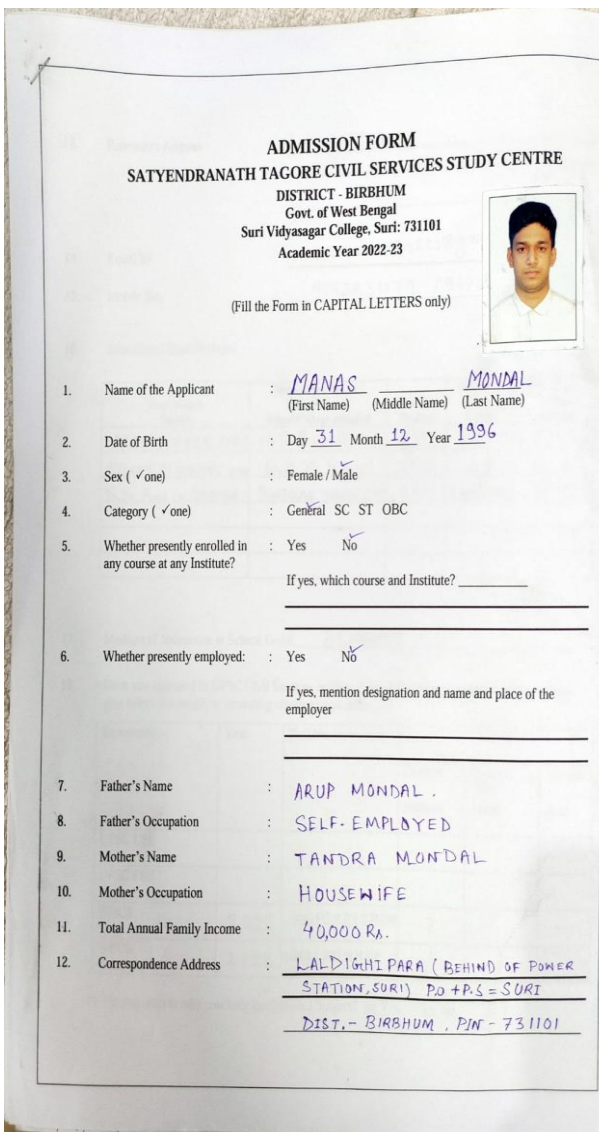 ADMISSION FORM
SATYENDRANATH TAGORE CIVIL SERVICES STUDY CENTRE
DISTRICT - BIRBHUM
Govt. of West Bengal
Suri Vidyasagar College, Suri: 731101
Academic Year 2022-23
(Fill the Form in CAPITAL LETTERS only)
1. Name of the Applicant : MANAS MONDAL
(First Name) (Middle Name) (Last Name)
2. Date of Birth : Day 31 Month 12 Year 1996
3. Sex ( ✓one) : Female / Male
4. Category ( ✓one) : General SC ST OBC
5. Whether presently enrolled in : Yes No
any course at any Institute?
If yes, which course and Institute?
6. Whether presently employed: : Yes No
If yes, mention designation and name and place of the
employer
7. Father's Name : ARUP MONDAL.
8. Father's Occupation : SELF-EMPLOYED
9. Mother's Name : TANDRA MONDAL
10. Mother's Occupation : HOUSEWIFE
11. Total Annual Family Income : 40,000 Rs.
12. Correspondence Address : LALDIGHIPARA (BEHIND OF POWER
STATION, SURI) P.O +P.S = SURI
DIST.- BIRBHUM, PIN - 731101